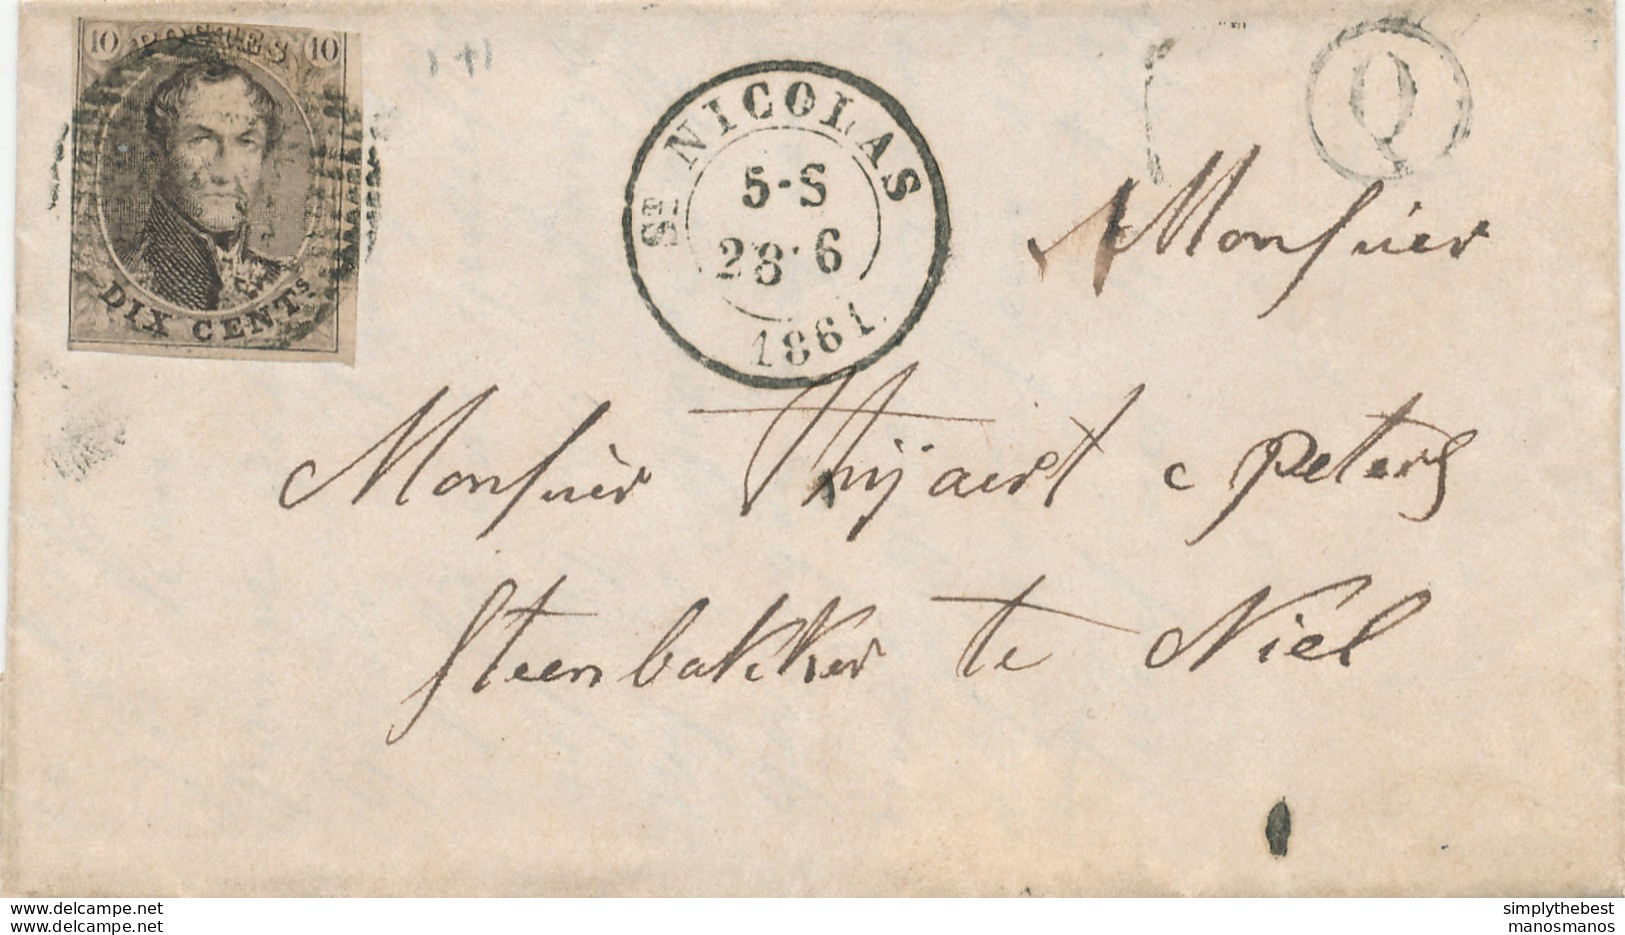 10 POSTES 10
DIX CENTs
ST NICOLAS
5-S
28·6
1861.
Q
Monsieur
Monsieur Thijaert c Peters
Steenbakker te Niel
www.delcampe.net
simplythebest
manosmanos